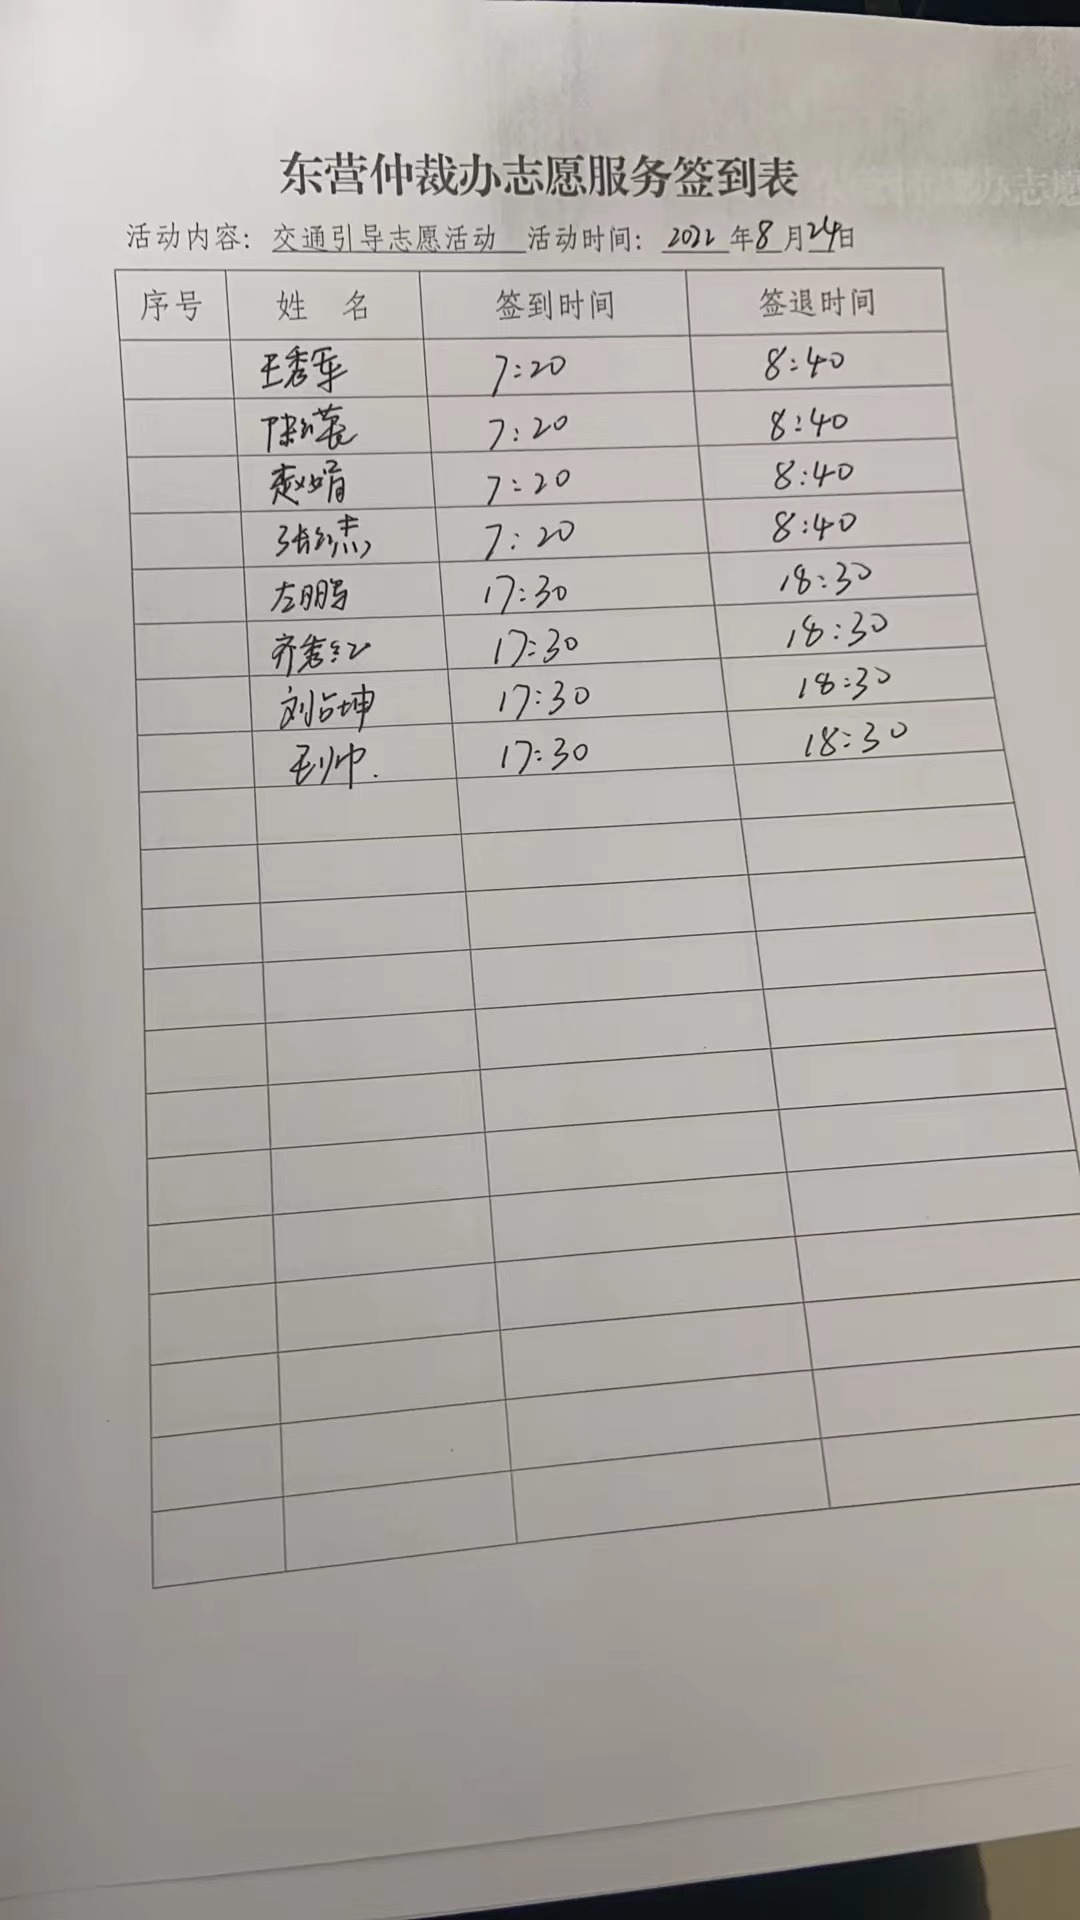 东营仲裁办志愿服务签到表
活动内容：交通引导志愿活动 活动时间：2022年8月24日
序号 姓 名 签到时间 签退时间
王秀军 7:20 8:40
陈 7:20 8:40
赵娟 7:20 8:40
张红杰 7:20 8:40
左鹏 17:30 18:30
齐秀红 17:30 18:30
刘占坤 17:30 18:30
帅 17:30 18:30